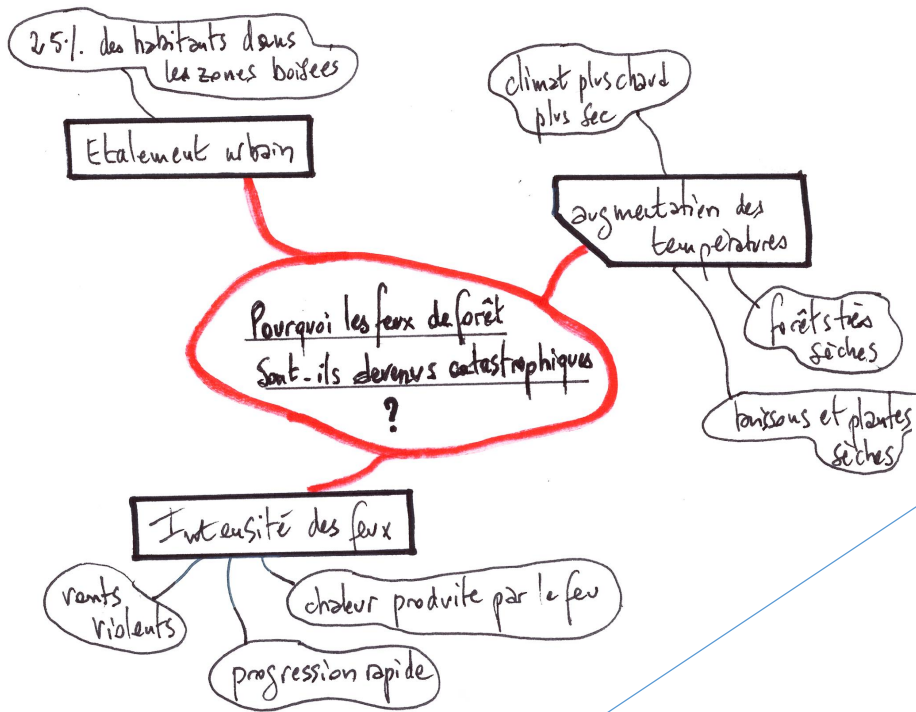 25%. des habitants dans
les zones boisées
Etalement urbain
climat plus chaud
plus sec
augmentation des
températures
forêts très
sèches
buissons et plantes
sèches
Pourquoi les feux de forêt
sont-ils devenus catastrophiques
?
Intensité des feux
vents
violents
chaleur produite par le feu
progression rapide